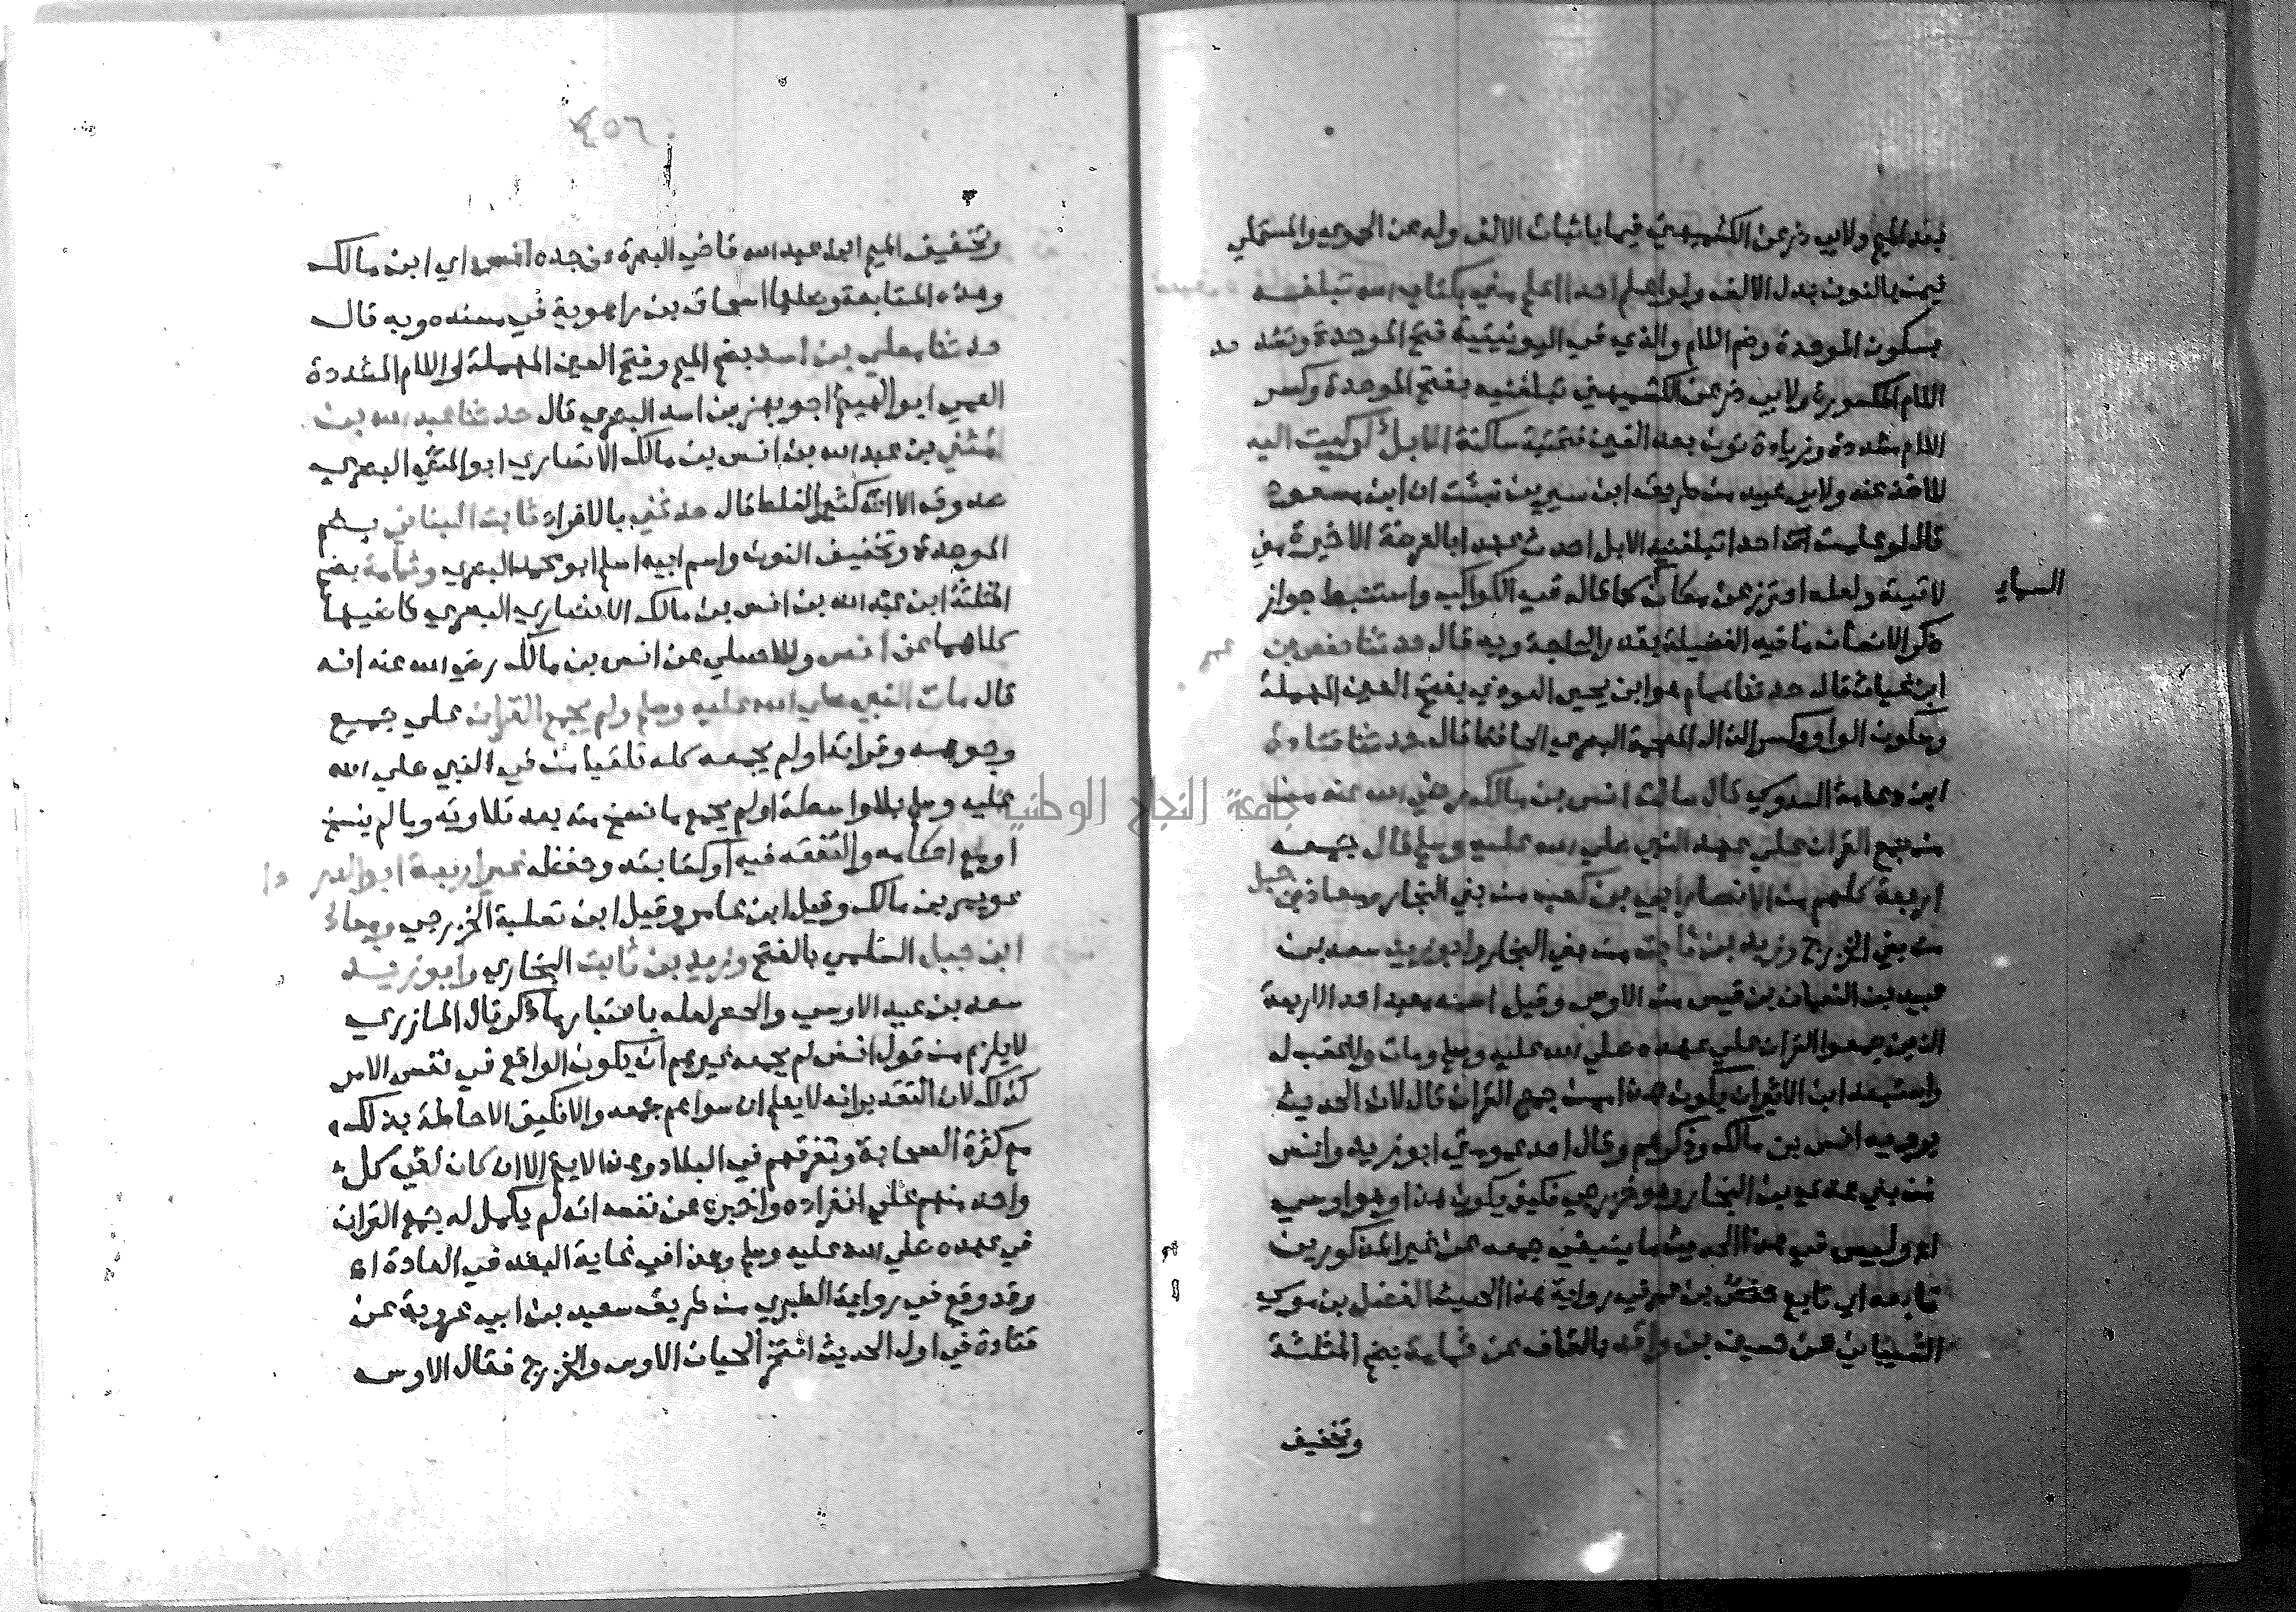 بعد الميم ولابي ذر عن الكشميهني فيما باثبات الالف وله عن الحموي والمستملي
فيمن بالنون بدل الالف ولو اعلم احدا اعلم مني بكتاب الله تبلغه
بسكون الموحدة وضم اللام والذي في اليونينية فتح الموحدة وتشد
اللام المكسورة ولابي ذر عن الكشميهني تبلغنيه بفتح الموحدة وكسر
اللام مشددة وزيادة نون بعد الغين فتحتية ساكنة الابل لركبت اليه
للاخذ عنه ولابي عبيد من طريق ابن سيرين نبئت ان ابن مسعود
قال لو علمت احدا تبلغنيه الابل احدث عهدا بالعرضة الاخيرة مني
لاتيته ولعله احترز عن سكان كما قاله في الكواكب واستنبط جواز
السماء
ذكر الانسان ما فيه الفضيلة بقدر الحاجة وبه قال حدثنا حفص بن عمر
ابن غياث قال حدثنا همام هو ابن يحيي العوذي بفتح العين المهملة
وسكون الواو وكسر الذال المعجمة البصري الحافظ قال حدثنا قتادة
ابن دعامة السدوسي قال سالت انس بن مالك رضي الله عنه
من جمع القران علي عهد النبي صلي الله عليه وسلم قال جمعه
اربعة كلهم من الانصار ابي بن كعب من بني النجار ومعاذ بن جبل
من بني الخزرج وزيد بن ثابت من بني النجار وابو زيد سعد بن
عبيد بن النعمان بن قيس من الاوس وقيل اسمه سعيد احد الاربعة
الذين جمعوا القران علي عهده صلي الله عليه وسلم ومات ولا عقب له
واستبعد ابن الاثير ان يكون هذا ممن جمع القران قال لان الحديث
يرويه انس بن مالك وذكرهم وقال احد عمومتي ابو زيد وانس
من بني عدي بن النجار وهو خزرجي فكيف يكون هذا وهو اوسي
اه وليس في هذا الحديث ما ينفي جمعه عن غير المذكورين
تابعه اي تابع حفص بن عمر في رواية هذا الحديث الفضل بن موسي
الشيباني عن حسين بن واقد بالقاف عن ثمامة بضم المثلثة
وتخفيف
٤٥٦
وتخفيف الميم ابن عبد الله قاضي البصرة عن جده انس اي ابن مالك
وهذه المتابعة وصلها اسحاق بن راهوية في مسنده وبه قال
حدثنا معلي بن اسد بضم الميم وفتح العين المهملة واللام المشددة
العمي ابو الهيثم اخو بهز بن اسد البصري قال حدثنا عبد الله بن
المثني بن عبد الله بن انس بن مالك الانصاري ابو المثني البصري
صدوق الا انه كثير الغلط قال حدثني بالافراد ثابت البناني بضم
الموحدة وتخفيف النون واسم ابيه اسلم ابو محمد البصري وثمامة بضم
المثلثة ابن عبد الله بن انس بن مالك الانصاري البصري قاضيها
كلاهما عن انس وللاصيلي عن انس بن مالك رضي الله عنه انه
قال مات النبي صلي الله عليه وسلم ولم يجمع القران علي جميع
وجوهه وقراته او لم يجمعه كله تلقيا من في النبي صلي الله
عليه وسلم بلا واسطة او لم يجمع ما نسخ منه بعد تلاوته وما لم ينسخ
او مع احكامه والتفقه فيه او كتابته وحفظه غير اربعة ابو الدردا
عويمر بن مالك وقيل ابن عامر وقيل ابن ثعلبة الخزرجي ومعاذ
ابن جبل السلمي بالفتح وزيد بن ثابت البخاري وابو زيد
سعد بن عبيد الاوسي والحصر لعله باعتبار ما ذكر قال المازري
لا يلزم من قول انس لم يجمعه غيرهم ان يكون الواقع في نفس الامر
كذلك لان التقدير انه لا يعلم ان سواهم جمعه والا فكيف الاحاطة بذلك
مع كثرة الصحابة وتفرقهم في البلاد وهذا لا يتم الا ان كان لقي كل
واحد منهم علي انفراده واخبره عن نفسه انه لم يكمل له جمع القران
في عهده صلي الله عليه وسلم وهذا في غاية البعد في العادة اه
وقد وقع في رواية الطبري من طريق سعيد بن ابي عروبة عن
قتادة في اول الحديث افتخر الحيان الاوس والخزرج فقال الاوس
جامعة النجاح الوطنية